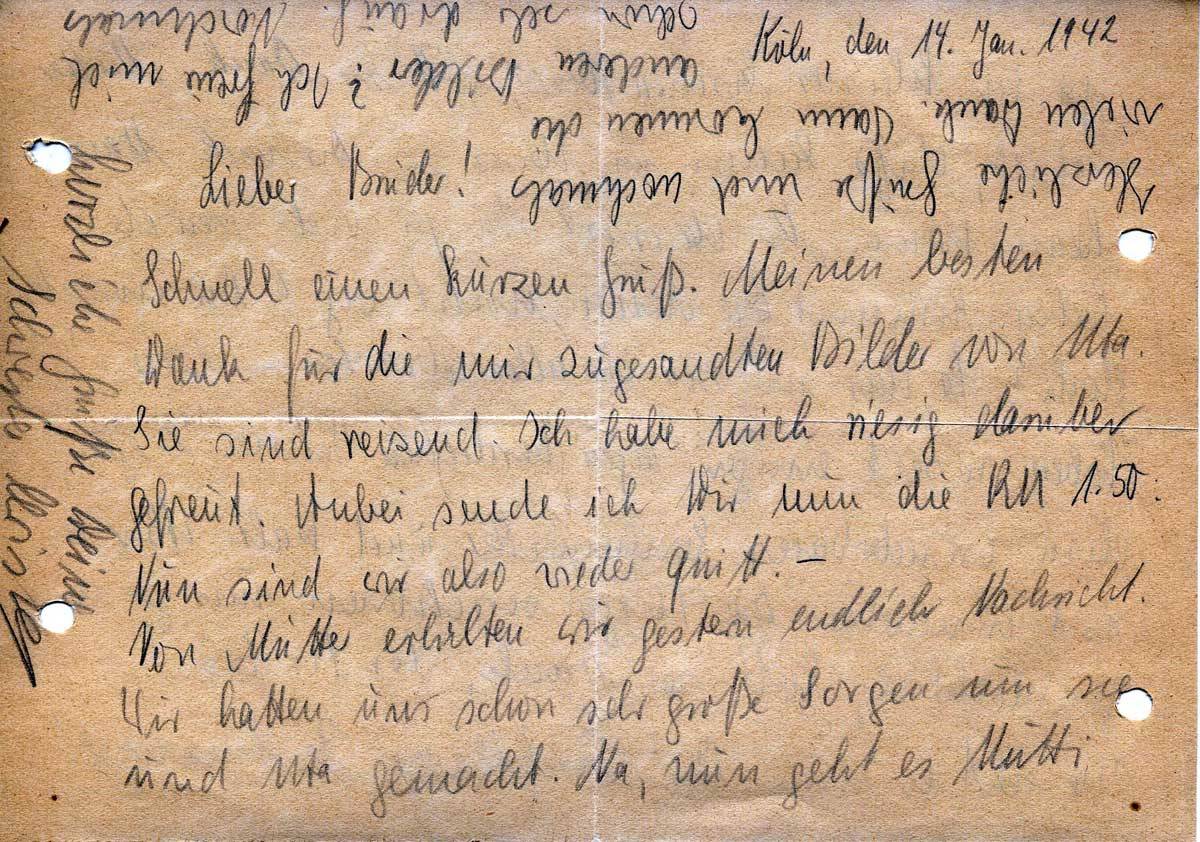 Köln, den 14. Jan. 1942
Lieber Bruder!
Schnell einen kurzen Gruß. Meinen besten
Dank für die mir zugesandten Bilder von Uta.
Sie sind reizend. Ich habe mich riesig darüber
gefreut. Anbei sende ich Dir nun die RM 1.50.
Nun sind wir also wieder quitt. –
Von Mutter erhilten wir gestern endlich Nachricht.
Wir hatten uns schon sehr große Sorgen um sie
und Uta gemacht. Na, nun geht es Mutti
Herzliche Grüße und nochmals
vielen Dank. Wann kommen die
anderen Bilder? Ich freu mich
schon seh drauf. Nochmals
herzliche Grüße Deine
Schwester Doris